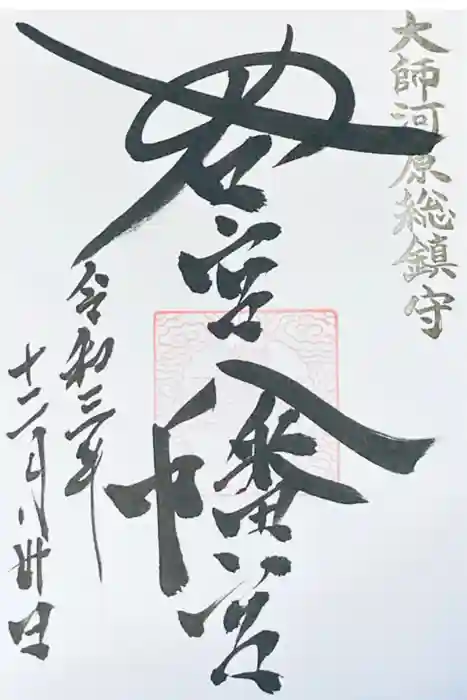 大師河原総鎮守
若宮八幡宮
令和三年
十二月卅日